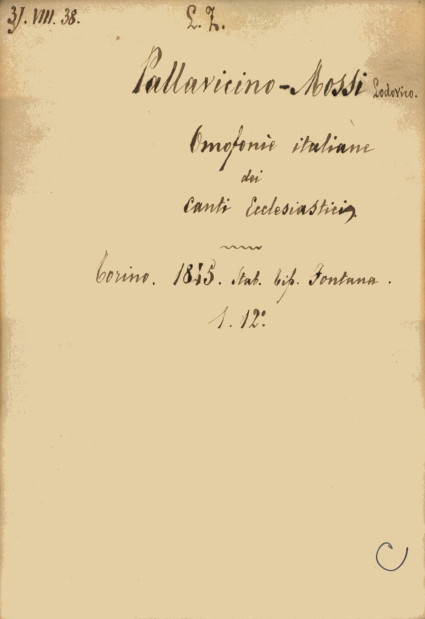 31. VIII. 38.
L. I.
Pallavicino-Mossi Lodovico.
Omofonie italiane
dei
Canti Ecclesiastici
Torino. 1845. Stab. tip. Fontana.
1. 12°.
C